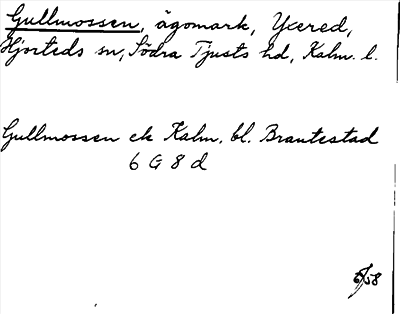 Gullmossen, ägomark, Ycered,
Hjorteds sn, Södra Tjusts hd, Kalm. l.
Gullmossen ek Kalm. bl. Brantestad
6 G 8 d